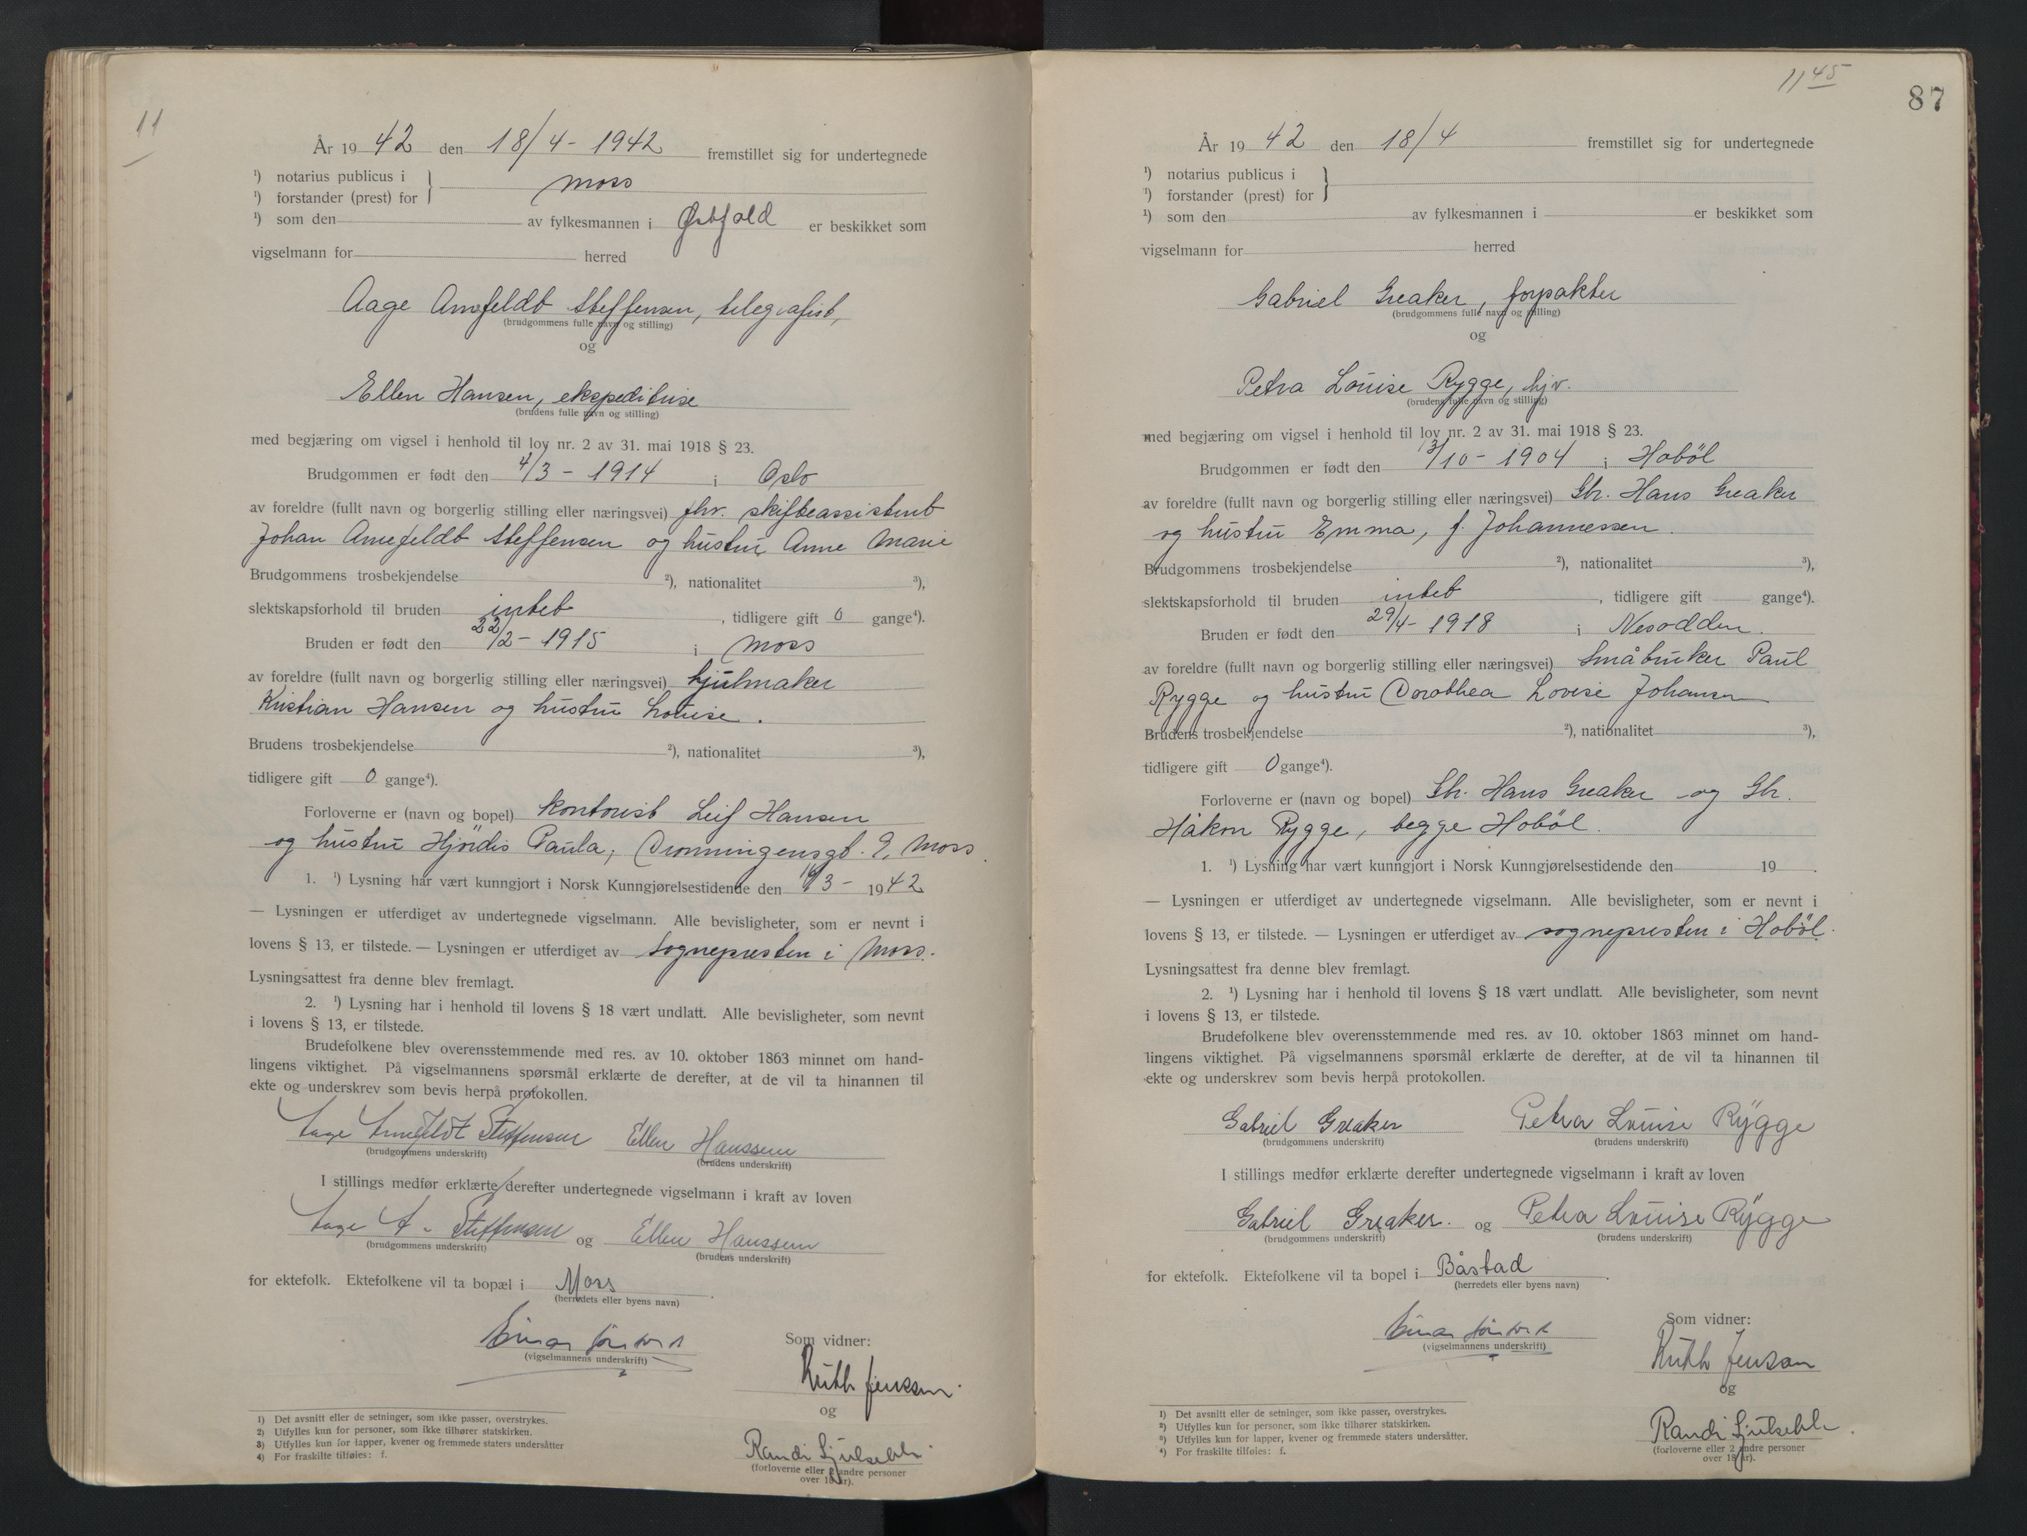 11
År 1942 den 18/4 - 1942 fremstillet sig for undertegnede
¹) notarius publicus i
Moss
¹) forstander (prest) for
¹) som den av fylkesmannen i Østfold er beskikket som
vigselmann for herred
Aage Arnefeldt Steffensen, telegrafist,
(brudgommens fulle navn og stilling)
og
Ellen Hansen, ekspeditrise
(brudens fulle navn og stilling)
med begjæring om vigsel i henhold til lov nr. 2 av 31. mai 1918 § 23.
Brudgommen er født den 4/3 - 1914 i Oslo
av foreldre (fullt navn og borgerlig stilling eller næringsvei) fhv. skifteassistent
Johan Arnefeldt Steffensen og hustru Anne Marie
Brudgommens trosbekjendelse ²), nationalitet ³),
slektskapsforhold til bruden intet, tidligere gift 0 gange⁴).
Bruden er født den 22/2 - 1915 i Moss
av foreldre (fullt navn og borgerlig stilling eller næringsvei) hjulmaker
Kristian Hansen og hustru Louise.
Brudens trosbekjendelse ²), nationalitet ³),
tidligere gift 0 gange⁴).
Forloverne er (navn og bopel) kontorist Leif Hansen
og hustru Hjördis Paula, Dronningensgt. 9, Moss.
1. ¹) Lysning har vært kunngjort i Norsk Kunngjørelsestidende den /3 - 1942
— Lysningen er utferdiget av undertegnede vigselmann. Alle bevisligheter, som er nevnt i
lovens § 13, er tilstede. — Lysningen er utferdiget av sognepresten i Moss.
Lysningsattest fra denne blev fremlagt.
2. ¹) Lysning har i henhold til lovens § 18 vært undlatt. Alle bevisligheter, som nevnt
i lovens § 13, er tilstede.
Brudefolkene blev overensstemmende med res. av 10. oktober 1863 minnet om hand-
lingens viktighet. På vigselmannens spørsmål erklærte de derefter, at de vil ta hinannen til
ekte og underskrev som bevis herpå protokollen.
Aage Arnefeldt Steffensen Ellen Hanssen
(brudgommens underskrift) (brudens underskrift)
I stillings medfør erklærte derefter undertegnede vigselmann i kraft av loven
Aage A. Steffensen og Ellen Hanssen
(brudgommens underskrift) (brudens underskrift)
for ektefolk. Ektefolkene vil ta bopæl i Moss
(herredets eller byens navn)
Einar
(vigselmannens underskrift)
Som vidner:
Ruth Jenssen.
og
Randi
(forloverne eller 2 andre personer
over 18 år).
1) Det avsnitt eller de setninger, som ikke passer, overstrykes.
2) Utfylles kun for personer, som ikke tilhører statskirken.
3) Utfylles kun for lapper, kvener og fremmede staters undersåtter
4) For fraskilte tilføies: f.
11 45
87
År 1942 den 18/4 fremstillet sig for undertegnede
¹) notarius publicus i
¹) forstander (prest) for
¹) som den av fylkesmannen i er beskikket som
vigselmann for herred
Gabriel Greaker, forpakter
(brudgommens fulle navn og stilling)
og
Petra Louise Rygge, hjv.
(brudens fulle navn og stilling)
med begjæring om vigsel i henhold til lov nr. 2 av 31. mai 1918 § 23.
Brudgommen er født den 13/10 - 1904 i Hoböl
av foreldre (fullt navn og borgerlig stilling eller næringsvei) Gbr. Hans Greaker
og hustru Emma, f. Johannessen.
Brudgommens trosbekjendelse ²), nationalitet ³),
slektskapsforhold til bruden intet, tidligere gift gange⁴).
Bruden er født den 29/4 - 1918 i Nesodden.
av foreldre (fullt navn og borgerlig stilling eller næringsvei) Småbruker Paul
Rygge og hustru Dorothea Lovise Johansen
Brudens trosbekjendelse ²), nationalitet ³),
tidligere gift 0 gange⁴).
Forloverne er (navn og bopel) Gbr. Hans Greaker og Gbr.
Håkon Rygge, begge Hoböl.
1. ¹) Lysning har vært kunngjort i Norsk Kunngjørelsestidende den 19 .
— Lysningen er utferdiget av undertegnede vigselmann. Alle bevisligheter, som er nevnt i
lovens § 13, er tilstede. — Lysningen er utferdiget av sognepresten i Hoböl.
Lysningsattest fra denne blev fremlagt.
2. ¹) Lysning har i henhold til lovens § 18 vært undlatt. Alle bevisligheter, som nevnt
i lovens § 13, er tilstede.
Brudefolkene blev overensstemmende med res. av 10. oktober 1863 minnet om hand-
lingens viktighet. På vigselmannens spørsmål erklærte de derefter, at de vil ta hinannen til
ekte og underskrev som bevis herpå protokollen.
Gabriel Greaker Petra Louise Rygge
(brudgommens underskrift) (brudens underskrift)
I stillings medfør erklærte derefter undertegnede vigselmann i kraft av loven
Gabriel Greaker. og Petra Louise Rygge
(brudgommens underskrift) (brudens underskrift)
for ektefolk. Ektefolkene vil ta bopel i Båstad
(herredets eller byens navn)
Einar
(vigselmannens underskrift)
Som vidner:
Ruth Jenssen
og
Randi
(forloverne eller 2 andre personer
over 18 år).
1) Det avsnitt eller de setninger, som ikke passer, overstrykes.
2) Utfylles kun for personer, som ikke tilhører statskirken.
3) Utfylles kun for lapper, kvener og fremmede staters undersåtter.
4) For fraskilte tilføies: f.